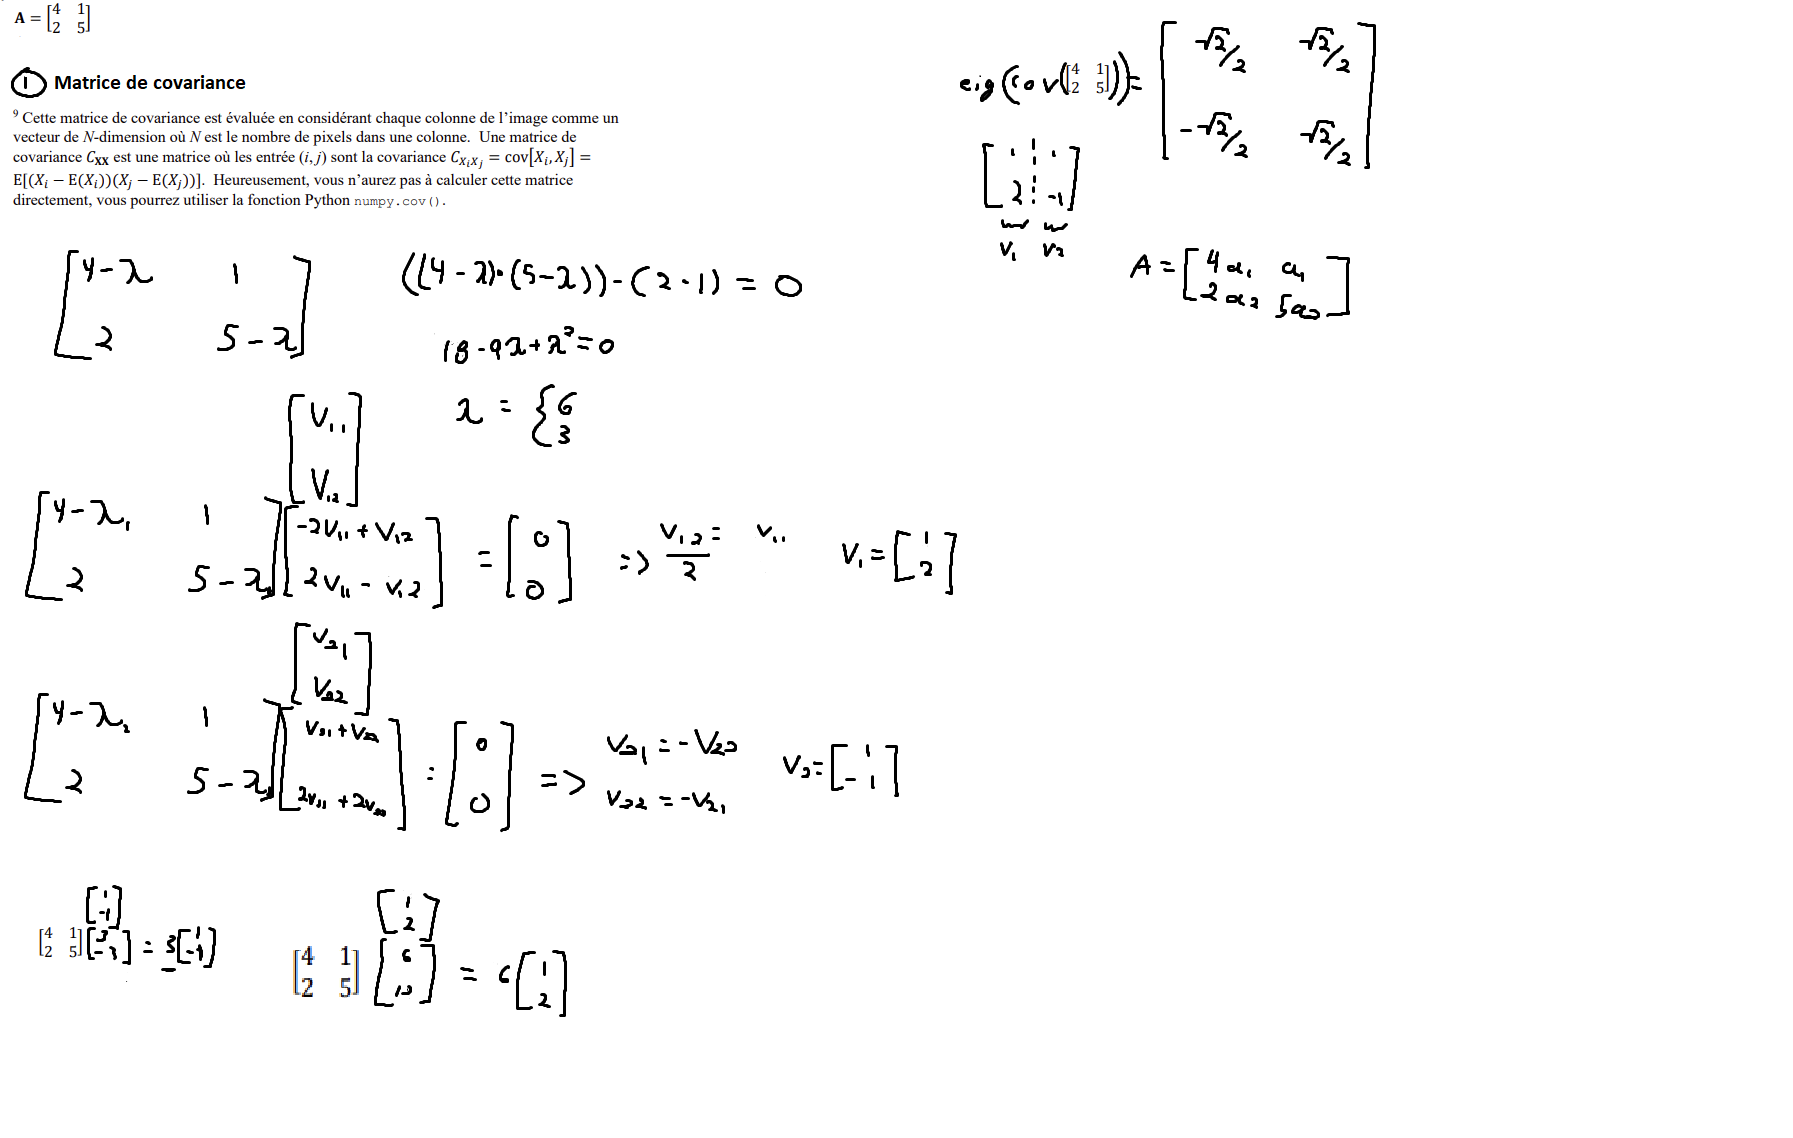 A = [4 1
2 5]
① Matrice de covariance
⁹ Cette matrice de covariance est évaluée en considérant chaque colonne de l’image comme un
vecteur de N-dimension où N est le nombre de pixels dans une colonne. Une matrice de
covariance C_XX est une matrice où les entrée (i, j) sont la covariance C_XiXj = cov[Xi, Xj] =
E[(Xi − E(Xi))(Xj − E(Xj))]. Heureusement, vous n’aurez pas à calculer cette matrice
directement, vous pourrez utiliser la fonction Python numpy.cov().
eig(cov([4 1
2 5]))=
[-√2/2 √2/2
-√2/2 √2/2]
[1 1
2 -1]
V1 V2
A = [4α1 α1
2α2 5α2]
[4-λ 1
2 5-λ]
((4-λ)·(5-λ))-(2·1) = 0
18-9λ+λ²=0
λ = {6
3
[V11
V12]
[4-λ1 1
2 5-λ1]
[-2V11 + V12
2V11 - V12]
= [0
0]
=> V12/2 = V11
V1 = [1
2]
[V21
V22]
[4-λ2 1
2 5-λ2]
[V21 + V22
2V11 + 2V22]
= [0
0]
=> V21 = -V22
V22 = -V21
V2 = [1
-1]
[1
-1]
[4 1
2 5]
[3
-3]
= 3[1
-1]
[1
2]
[4 1
2 5]
[6
12]
= 6[1
2]